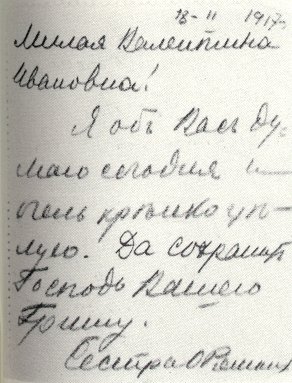 18-II 1917.
Милая Валентина
Ивановна!
Я объ Васъ ду-
маю сегодня и
очень крѣпко цѣ-
лую. Да сохранитъ
Господь Вашего
Гришу.
Сестра О